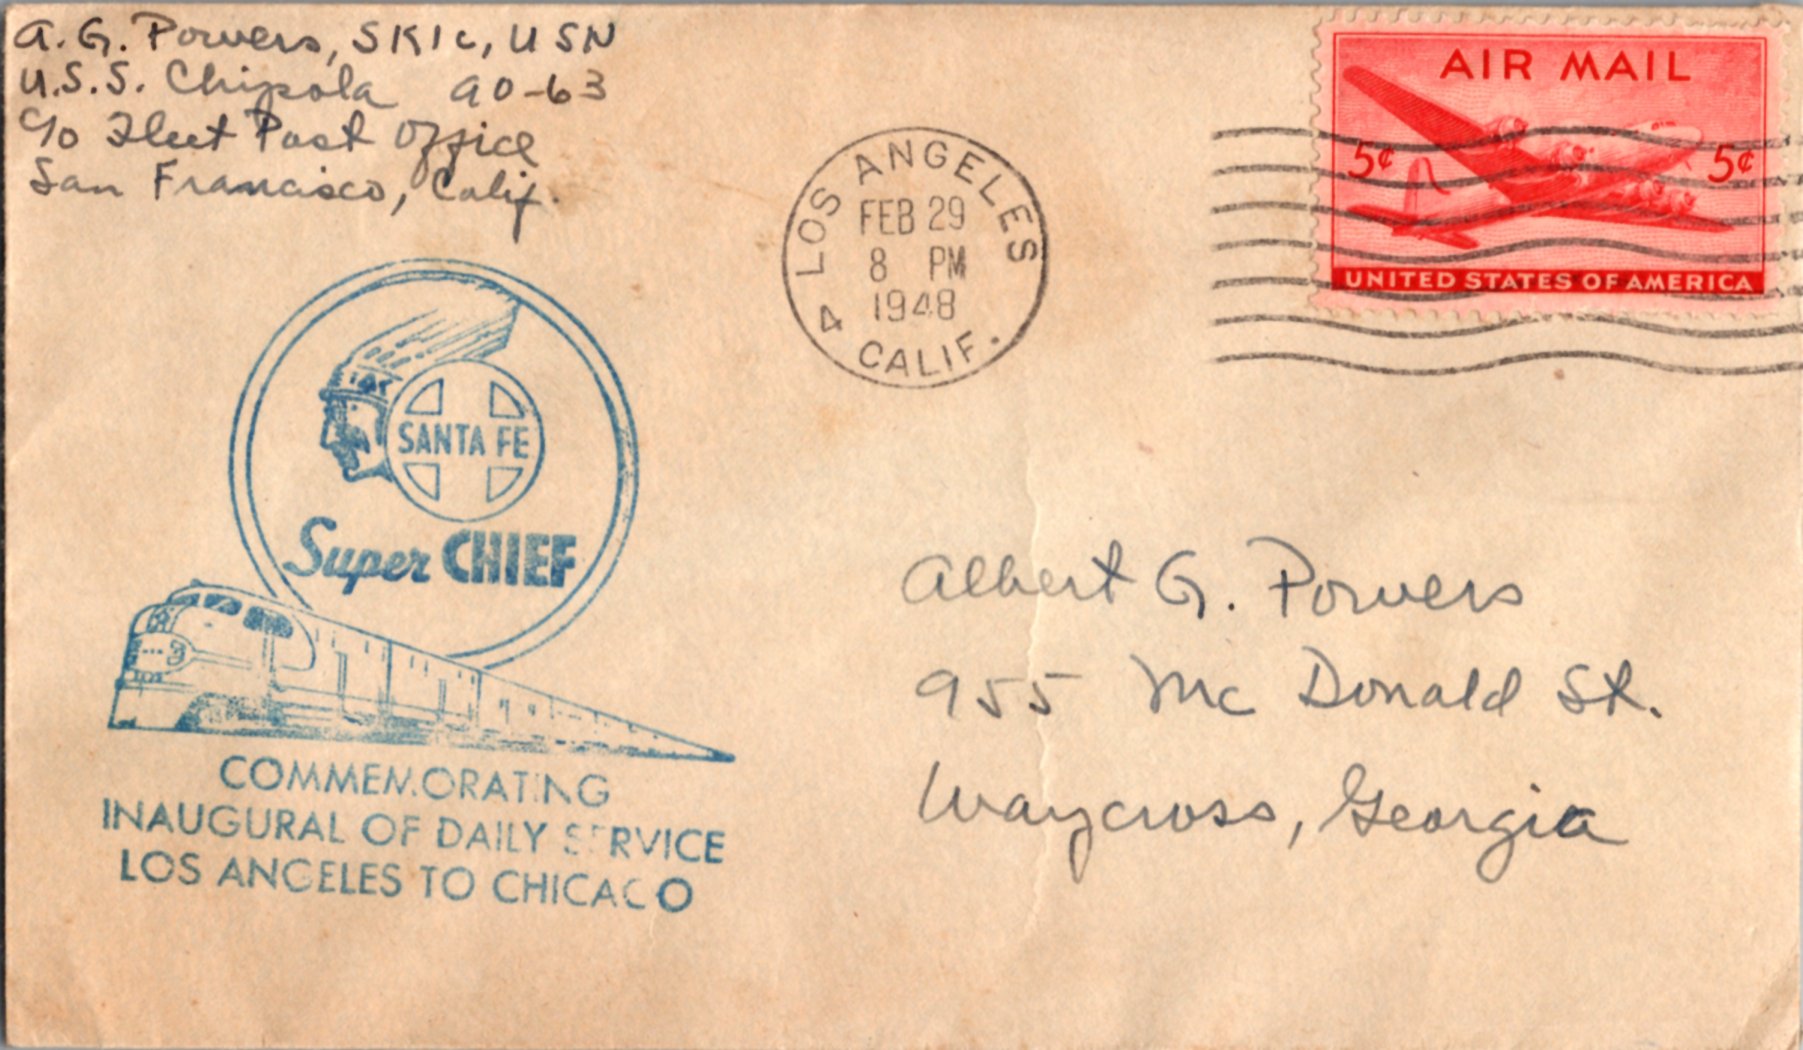 A. G. Powers, SK1c, USN
U.S.S. Chipola AO-63
c/o Fleet Post Office
San Francisco, Calif.
LOS ANGELES 4 CALIF.
FEB 29
8 PM
1948
AIR MAIL
5¢ 5¢
UNITED STATES OF AMERICA
SANTA FE
Super CHIEF
COMMEMORATING
INAUGURAL OF DAILY SERVICE
LOS ANGELES TO CHICAGO
Albert G. Powers
955 Mc Donald St.
Waycross, Georgia